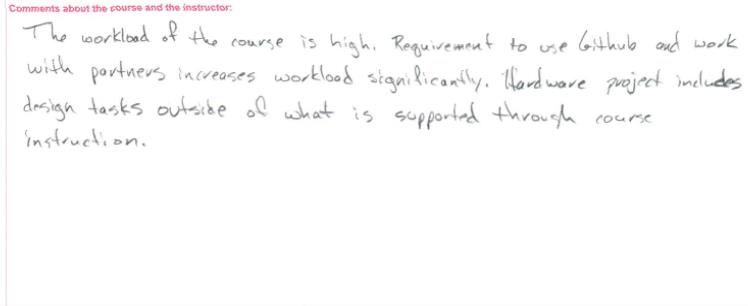 Comments about the course and the instructor:
The workload of the course is high. Requirement to use Github and work
with partners increases workload significantly. Hardware project includes
design tasks outside of what is supported through course
instruction.